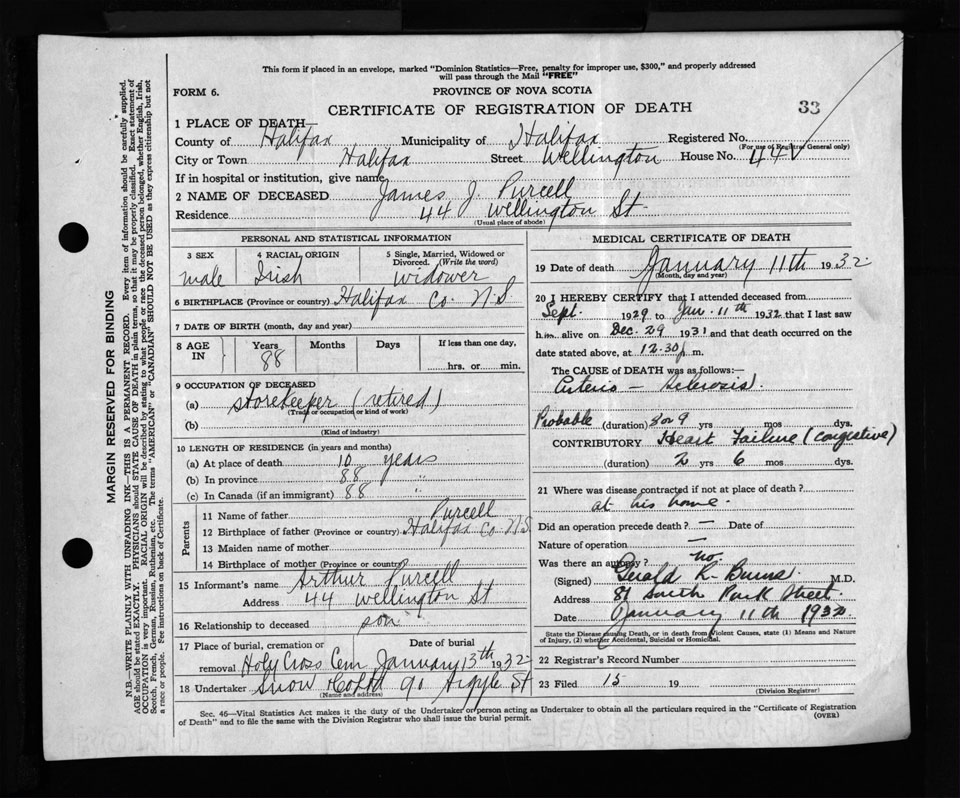 This form if placed in an envelope, marked "Dominion Statistics—Free, penalty for improper use, $300," and properly addressed
will pass through the Mail "FREE"
FORM 6.
PROVINCE OF NOVA SCOTIA
CERTIFICATE OF REGISTRATION OF DEATH
33
1 PLACE OF DEATH—
County of Halifax Municipality of Halifax Registered No.
(For use of Registrar General only)
City or Town Halifax Street Wellington House No. 44
If in hospital or institution, give name
2 NAME OF DECEASED James J. Purcell
Residence 44 Wellington St
(Usual place of abode)
PERSONAL AND STATISTICAL INFORMATION
3 SEX 4 RACIAL ORIGIN 5 Single, Married, Widowed or Divorced. (Write the word)
male Irish widower
6 BIRTHPLACE (Province or country) Halifax Co. N.S.
7 DATE OF BIRTH (month, day and year)
8 AGE IN Years Months Days If less than one day,
88 hrs. or min.
9 OCCUPATION OF DECEASED
(a) Storekeeper (retired)
(Trade or occupation or kind of work)
(b)
(Kind of industry)
10 LENGTH OF RESIDENCE (in years and months)
(a) At place of death 10 years
(b) In province 88 "
(c) In Canada (if an immigrant) 88 "
Parents
11 Name of father Purcell
12 Birthplace of father (Province or country) Halifax Co. N.S.
13 Maiden name of mother
14 Birthplace of mother (Province or country)
15 Informant's name Arthur Purcell
Address 44 Wellington St
16 Relationship to deceased son
17 Place of burial, cremation or removal Date of burial
Holy Cross Cem January 13th 1932
18 Undertaker Snow & Co Ltd 90 Argyle St
(Name and address)
MEDICAL CERTIFICATE OF DEATH
19 Date of death January 11th 1932
(Month, day and year)
20 I HEREBY CERTIFY that I attended deceased from
Sept. 1929 to Jan. 11th 1932 that I last saw
h im alive on Dec. 29 1931 and that death occurred on
date stated above, at 12.30 p. m.
The CAUSE of DEATH was as follows:—
Arterio - Sclerosis.
Probable (duration) 8 or 9 yrs mos dys.
CONTRIBUTORY Heart Failure (congestive)
(duration) 2 yrs 6 mos dys.
21 Where was disease contracted if not at place of death?
at his home.
Did an operation precede death? — Date of
Nature of operation —
Was there an autopsy? no.
(Signed) Gerald R. Burns. M.D.
Address 81 South Park Street.
Date January 11th 1932
State the Disease causing Death, or in death from Violent Causes, state (1) Means and Nature
of Injury, (2) whether Accidental, Suicidal or Homicidal.
22 Registrar's Record Number
23 Filed 15 19
(Division Registrar)
Sec. 46—Vital Statistics Act makes it the duty of the Undertaker or person acting as Undertaker to obtain all the particulars required in the "Certificate of Registration
of Death" and to file the same with the Division Registrar who shall issue the burial permit.
(OVER)
MARGIN RESERVED FOR BINDING
N.B.—WRITE PLAINLY WITH UNFADING INK—THIS IS A PERMANENT RECORD. Every item of information should be carefully supplied.
AGE should be stated EXACTLY. PHYSICIANS should STATE CAUSE OF DEATH in plain terms, so that it may be properly classified. Exact statement of
OCCUPATION is very important. RACIAL ORIGIN will be described by stating to what people or race the deceased person belonged, whether English, Irish,
Scotch, French, German, Russian, Ruthenian, etc. The terms "AMERICAN" or "CANADIAN" SHOULD NOT BE USED as they express citizenship but not
a race or people. Fee instructions on back of Certificate.